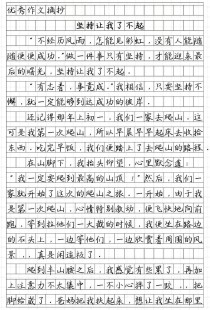 优秀作文摘抄
坚持让我了不起
"不经历风雨,怎能见彩虹,没有人能随
随便便成功。"做一件事只有坚持,才能迎来最
后的曙光,坚持让我了不起。
"有志者,事竟成。"我相信,只要坚持不
懈,就一定能够到达成功的彼岸。
还记得那年上初一,我们一家去爬山,这
可是我第一次爬山,所以早晨早早起床去收拾
东西,吃完早饭,我们便踏上了去爬山的路程。
在山脚下,我抬头仰望,心里默念道:
"我一定要爬到最高的山顶!"然后,我们一
家就开始了这次的爬山之旅,一开始,由于我
是第一次爬山,心情特别激动,便飞快地向前
跑,等到拉他们一大截的时候,我便坐在路边
的石头上,一边等他们,一边欣赏着周围的风
景,真是闲逸极了。
爬到半山腰之后,我感觉有些累了,再加
上注意力不太集中,一不小心摔了一跤,把
脚给崴了,爸妈把我扶起来,想让我在那里